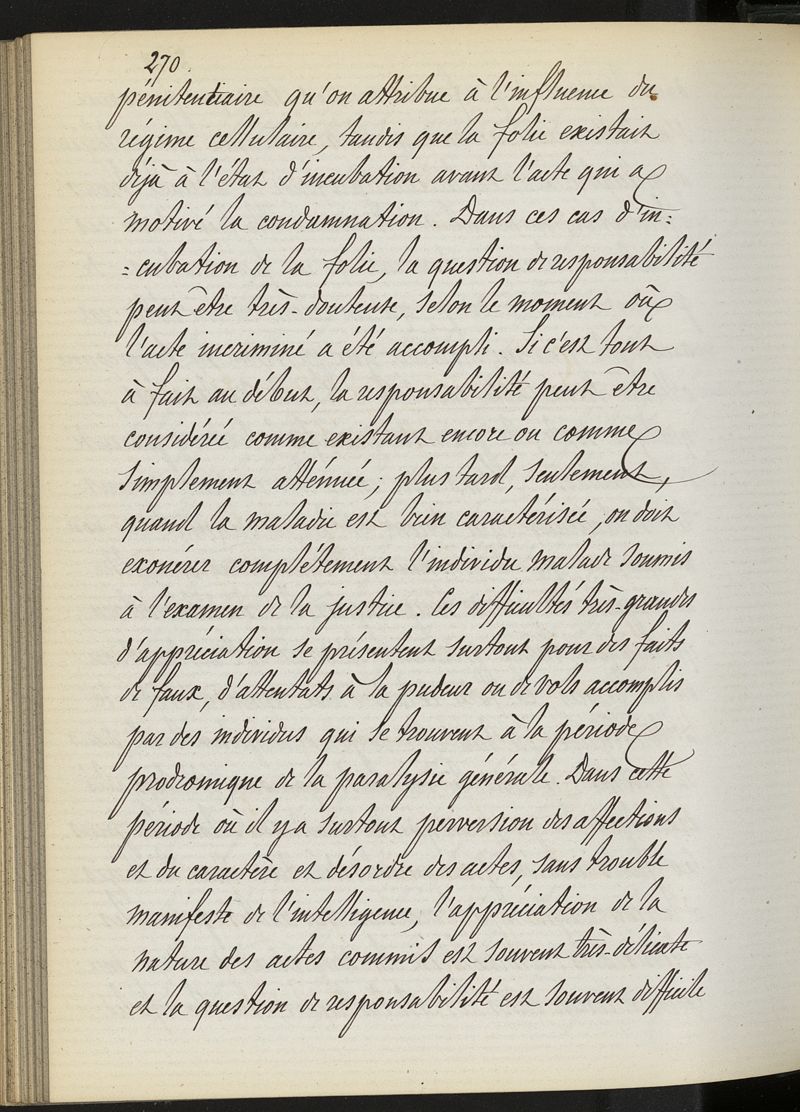 270
pénitentiaire qu'on attribue à l'influence du
régime cellulaire, tandis que la folie existait
déjà à l'état d'incubation avant l'acte qui a
motivé la condamnation. Dans ces cas d'in=
=cubation de la folie, la question de responsabilité
peut être très-douteuse, selon le moment où
l'acte incriminé a été accompli. Si c'est tout
à fait au début, la responsabilité peut être
considérée comme existant encore ou comme
simplement atténuée; plus tard, seulement,
quand la maladie est bien caractérisée, on doit
exonérer complétement l'individu malade soumis
à l'examen de la justice. Ces difficultés très-grandes
d'appréciation se présentent surtout pour des faits
de faux, d'attentats à la pudeur ou de vols accomplis
par des individus qui se trouvent à la période
prodromique de la paralysie générale. Dans cette
période où il y a surtout perversion des affections
et du caractère et désordre des actes, sans trouble
manifeste de l'intelligence, l'appréciation de la
nature des actes commis est souvent très-délicate
et la question de responsabilité est souvent difficile